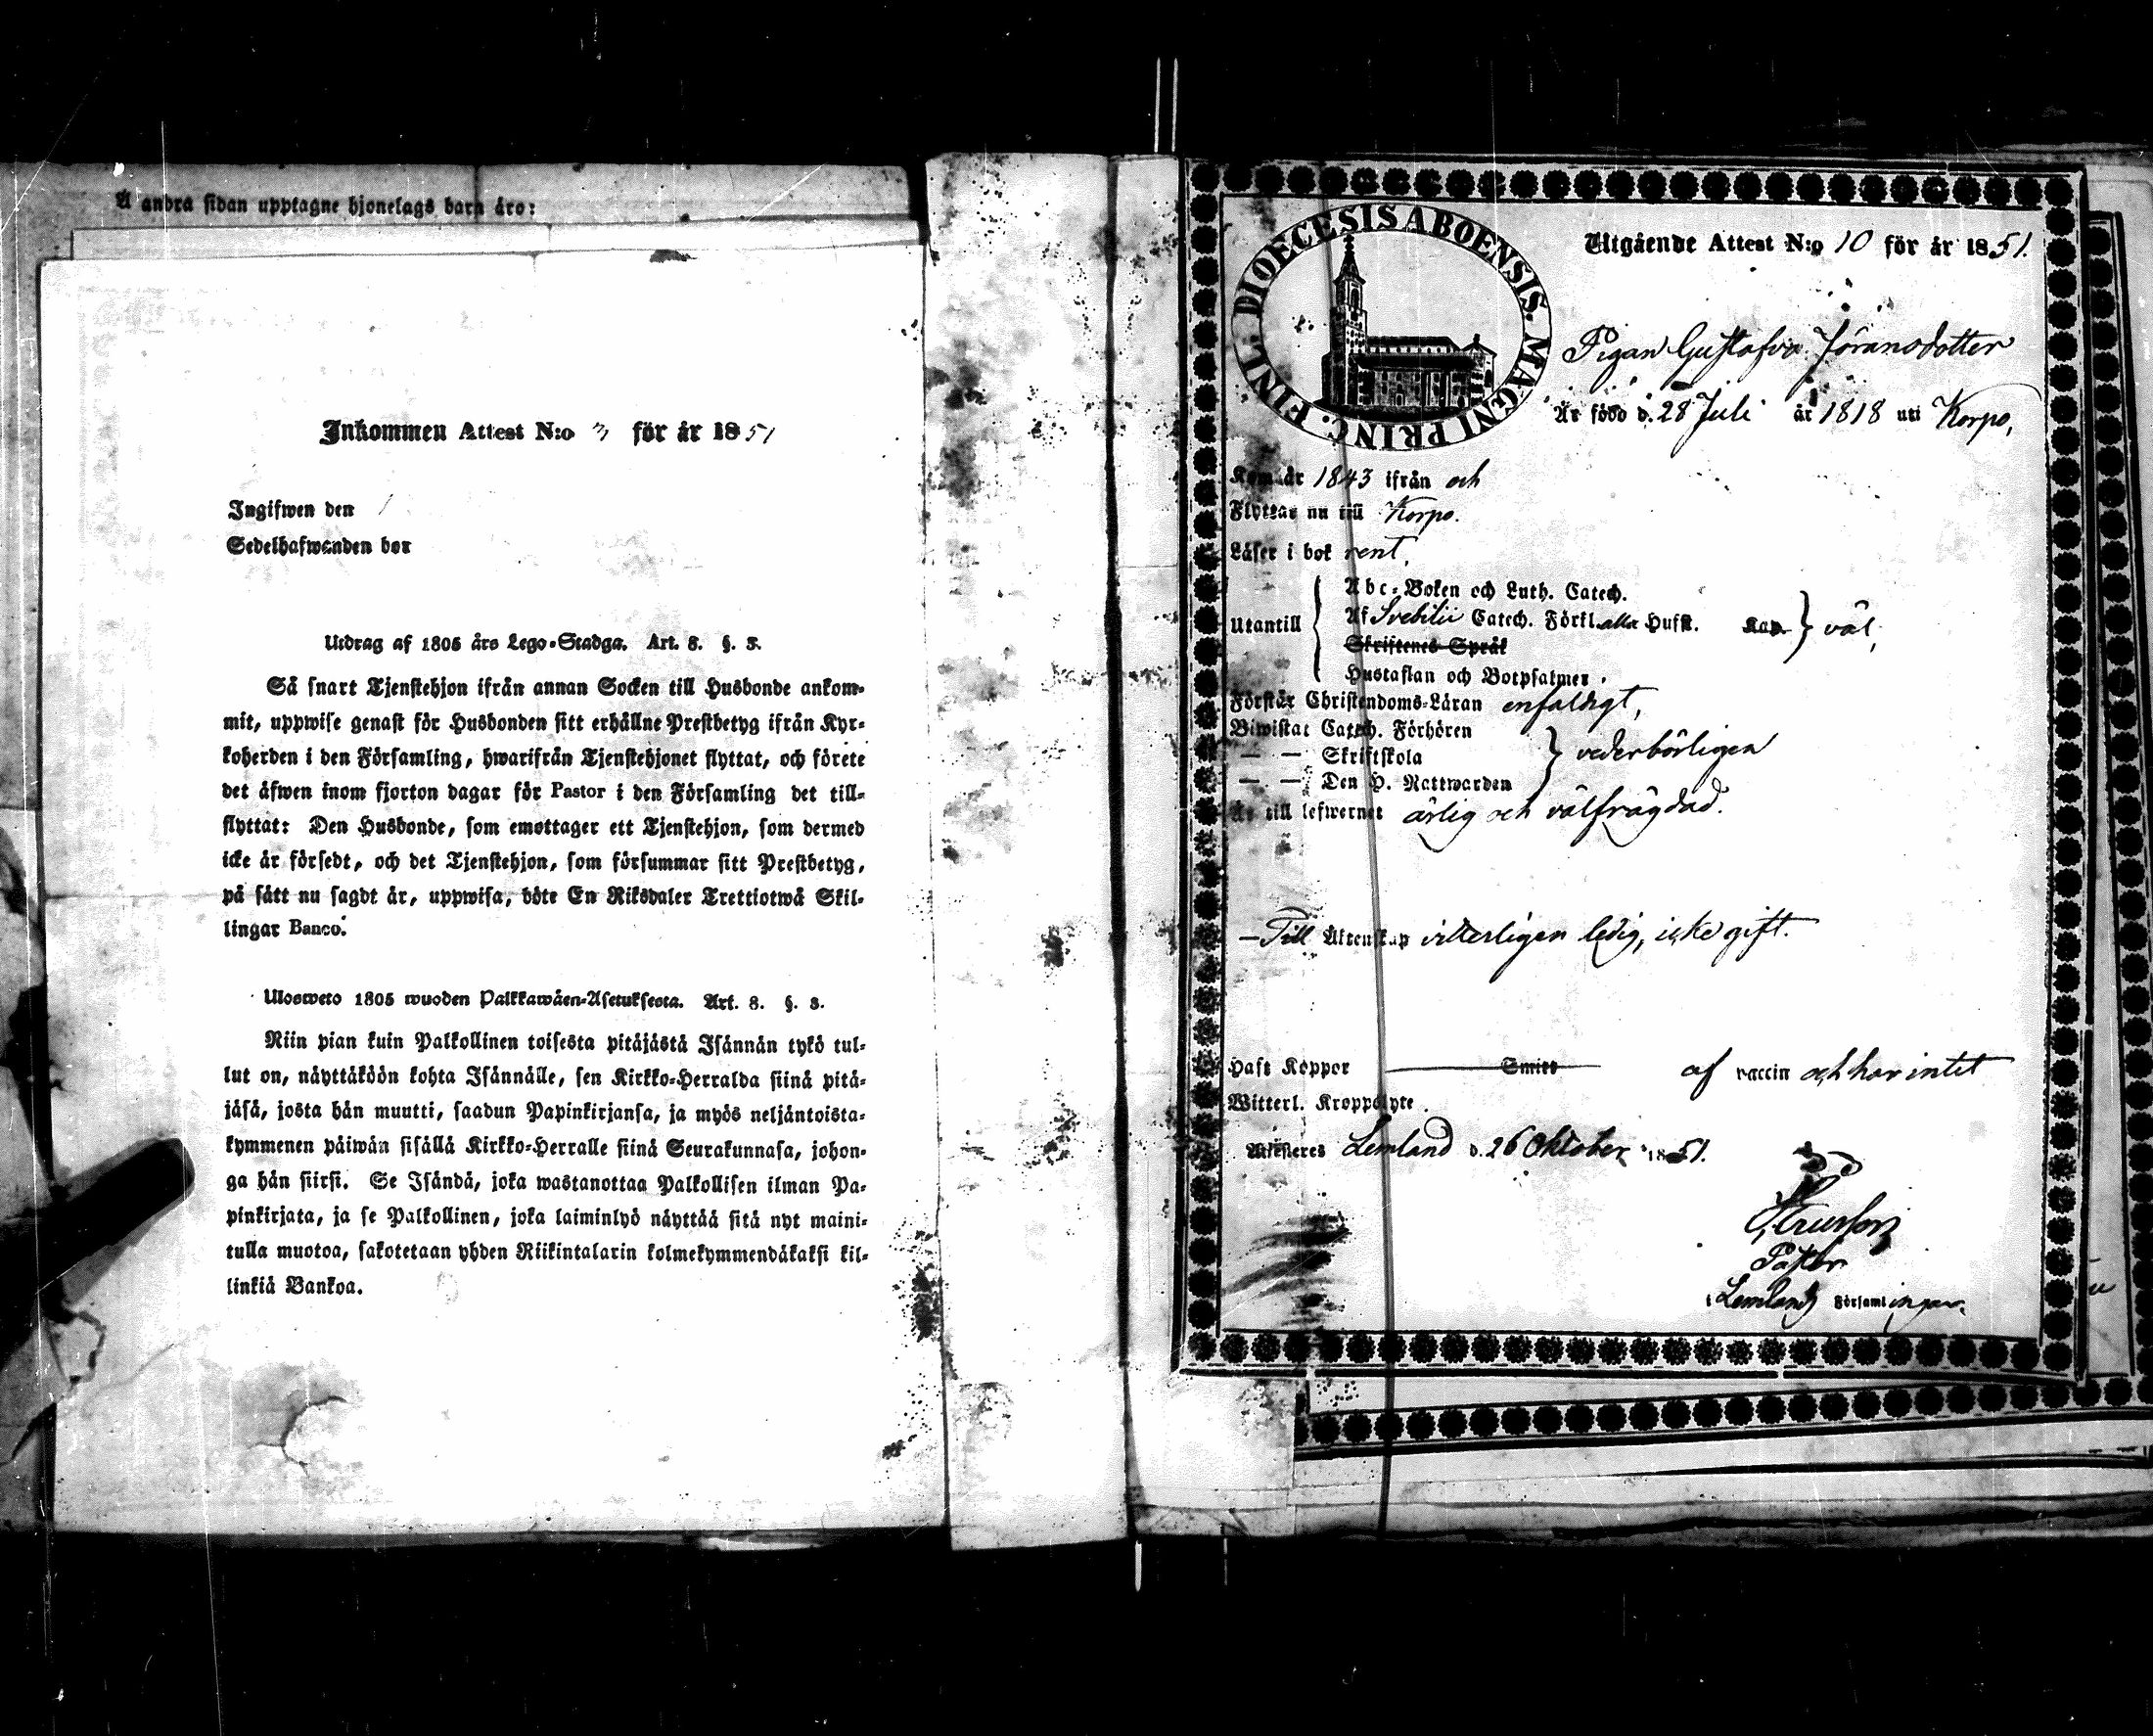 Å andra sidan upptagne hjonelags barn äro:
Inkommen Attest N:o 3 för år 1851
Ingifwen den
Sedelhafwanden bor
Utdrag af 1805 års Lego-Stadga. Art. 8. §. 3.
Så snart Tjenstehjon ifrån annan Socken till Husbonde ankom-
mit, uppwise genast för Husbonden sitt erhållne Prestbetyg ifrån Kyr-
koherden i den Församling, hwarifrån Tjenstehjonet flyttat, och förete
det äfwen inom fjorton dagar för Pastor i den Församling det till-
flyttat: Den Husbonde, som emottager ett Tjenstehjon, som dermed
icke är försedt, och det Tjenstehjon, som försummar sitt Prestbetyg,
på sätt nu sagdt är, uppwisa, böte En Riksdaler Trettiotwå Skil-
lingar Banco.
Ulosweto 1805 wuoden Palkkawäen-Asetuksesta. Art. 8. §. 3.
Niin pian kuin Palkollinen toisesta pitäjästä Isännän tykö tul-
lut on, näyttäköön kohta Isännälle, sen Kirkko-Herralda siinä pitä-
jäsä, josta hän muutti, saadun Papinkirjansa, ja myös neljäntoista-
kymmenen päiwän sisällä Kirkko-Herralle siinä Seurakunnasa, johon-
ga hän siirsi. Se Isändä, joka wastanottaa Palkollisen ilman Pa-
pinkirjata, ja se Palkollinen, joka laiminlyö näyttää sitä nyt maini-
tulla muotoa, sakotetaan yhden Riikintalarin kolmekymmendäkaksi kil-
linkiä Bankoa.
DIOECESIS ABOENSIS. MAGNI PRINC. FINL.
Utgående Attest N:o 10 för år 1851.
Pigan Gustafva Jöransdotter
Är född d. 28 Juli år 1818 uti Korpo,
Kom år 1843 ifrån och
Flyttar nu till Korpo.
Läser i bok rent,
Abc-Boken och Luth. Catech.
Utantill Af Svebilii Catech. Förkl. alla Hufst. Kap. väl,
Skriftenes Språk
Hustaflan och Botpsalmer.
Förstår Christendoms-Läran enfaldigt,
Biwistat Catech. Förhören
— — Skriftskola vederbörligen
— — Den H. Nattwarden
Är till lefwernet ärlig och välfrägdad.
— Till Äktenskap vitterligen ledig, icke gift.
Haft Koppor Smitt af vaccin och har intet
Witterl. Kroppslyte.
Attesteres Lemland d. 26 Oktober 1851.
Pastor
i Lemlands Församlingar.